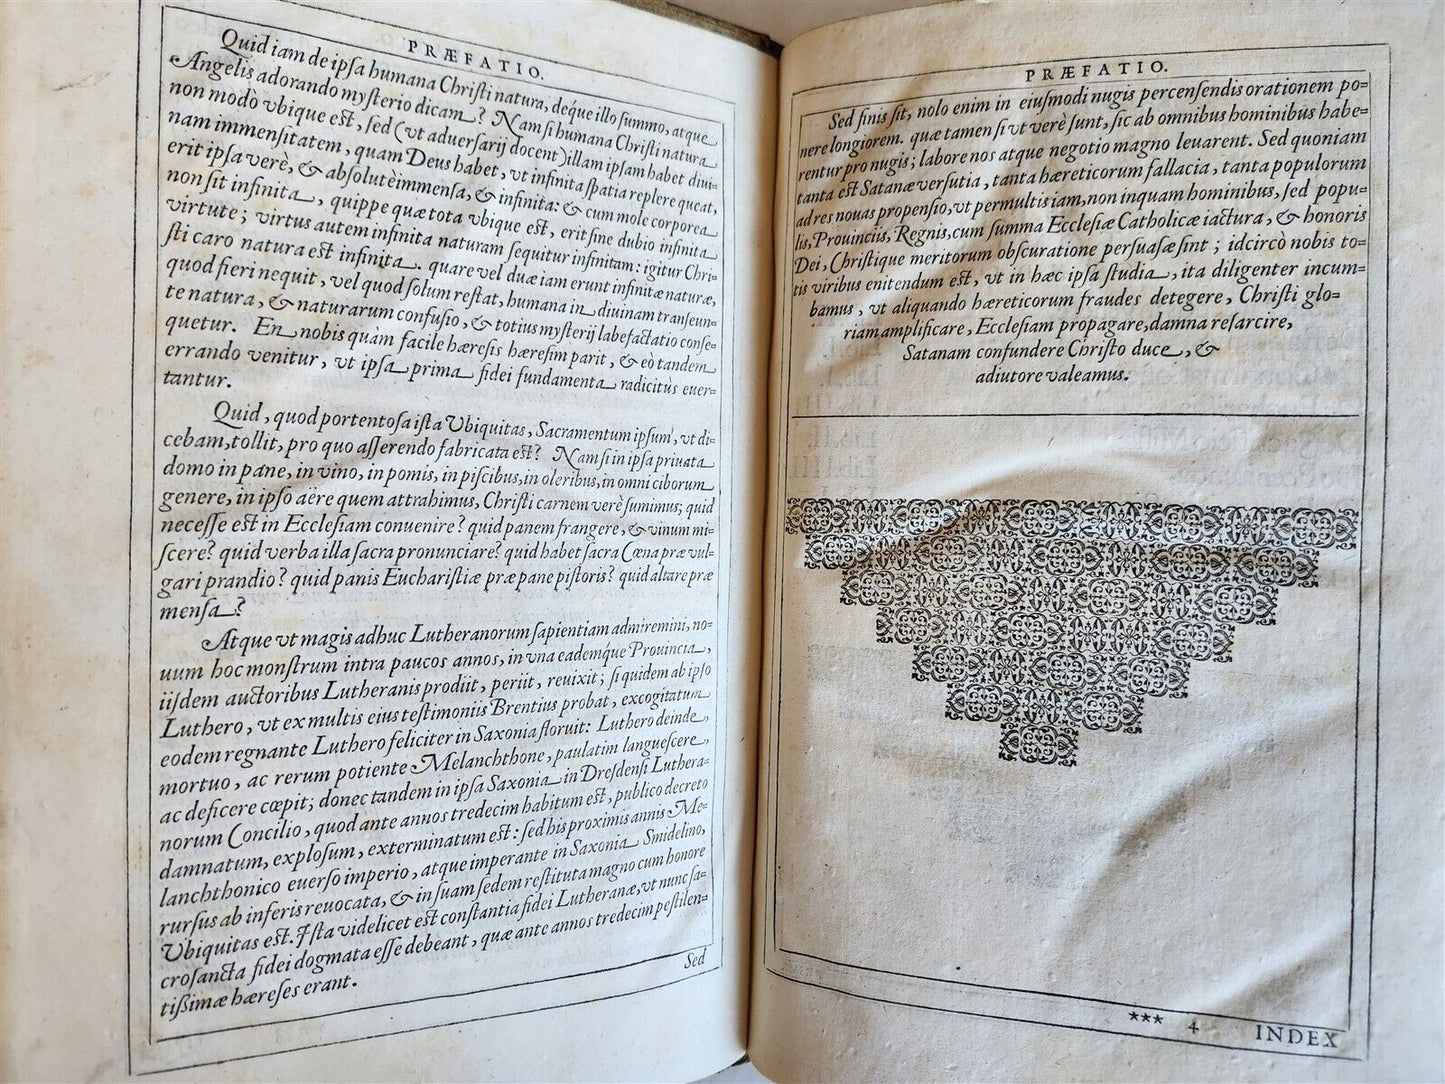 PRÆFATIO.
Quid iam de ipſa humana Chriſti natura, deq́ue illo ſummo, atque
Angelis adorando myſterio dicam? Nam ſi humana Chriſti natura
non modò vbique eſt, ſed (vt aduerſarij docent) illam ipſam habet diui-
nam immenſitatem, quam Deus habet, vt infinita ſpatia replere queat,
erit ipſa verè, & abſolutè immenſa, & infinita: & cum mole corporea
non ſit infinita, quippe quæ tota vbique eſt, erit ſine dubio infinita
virtute; virtus autem infinita naturam ſequitur infinitam: igitur Chri-
ſti caro natura eſt infinita. quare vel duæ iam erunt infinitæ naturæ,
quod fieri nequit, vel quod ſolum reſtat, humana in diuinam tranſeun-
te natura, & naturarum confuſio, & totius myſterij labefactatio conſe-
quetur. En nobis quàm facile hæreſis hæreſim parit, & eò tandem
errando venitur, vt ipſa prima fidei fundamenta radicitùs euer-
tantur.
Quid, quod portentoſa iſta Vbiquitas, Sacramentum ipſum, vt di-
cebam, tollit, pro quo aſſerendo fabricata eſt? Nam ſi in ipſa priuata
domo in pane, in vino, in pomis, in piſcibus, in oleribus, in omni ciborum
genere, in ipſo aëre quem attrahimus, Chriſti carnem verè ſumimus; quid
neceſſe eſt in Eccleſiam conuenire? quid panem frangere, & vinum mi-
ſcere? quid verba illa ſacra pronunciare? quid habet ſacra Cœna præ vul-
gari prandio? quid panis Euchariſtiæ præ pane piſtoris? quid altare præ
menſa?
Atque vt magis adhuc Lutheranorum ſapientiam admiremini, no-
uum hoc monſtrum intra paucos annos, in vna eademq́ue Prouincia,
iiſdem auctoribus Lutheranis prodiit, periit, reuixit; ſi quidem ab ipſo
Luthero, vt ex multis eius teſtimoniis Brentius probat, excogitatum
eodem regnante Luthero feliciter in Saxonia floruit: Luthero deinde
mortuo, ac rerum potiente Melanchthone, paulatim langueſcere,
ac deficere cœpit; donec tandem in ipſa Saxonia in Dreſdenſi Luthera-
norum Concilio, quod ante annos tredecim habitum eſt, publico decreto
damnatum, exploſum, exterminatum eſt: ſed his proximis annis Me-
lanchthonico euerſo imperio, atque imperante in Saxonia Smidelino,
rurſus ab inferis reuocata, & in ſuam ſedem reſtituta magno cum honore
Vbiquitas eſt. Iſta videlicet eſt conſtantia fidei Lutheranæ, vt nunc ſa-
croſancta fidei dogmata eſſe debeant, quæ ante annos tredecim peſtilen-
tiſſimæ hæreſes erant.
Sed
PRÆFATIO.
Sed finis ſit, nolo enim in eiuſmodi nugis percenſendis orationem po-
nere longiorem. quæ tamen ſi vt verè ſunt, ſic ab omnibus hominibus habe-
rentur pro nugis; labore nos atque negotio magno leuarent. Sed quoniam
tanta eſt Satanæ verſutia, tanta hæreticorum fallacia, tanta populorum
ad res nouas propenſio, vt permultis iam, non inquam hominibus, ſed popu-
lis, Prouinciis, Regnis, cum ſumma Eccleſiæ Catholicæ iactura, & honoris
Dei, Chriſtique meritorum obſcuratione perſuaſæ ſint; idcircò nobis to-
tis viribus enitendum eſt, vt in hæc ipſa ſtudia, ita diligenter incum-
bamus, vt aliquando hæreticorum fraudes detegere, Chriſti glo-
riam amplificare, Eccleſiam propagare, damna reſarcire,
Satanam confundere Chriſto duce, &
adiutore valeamus.
*** 4 INDEX